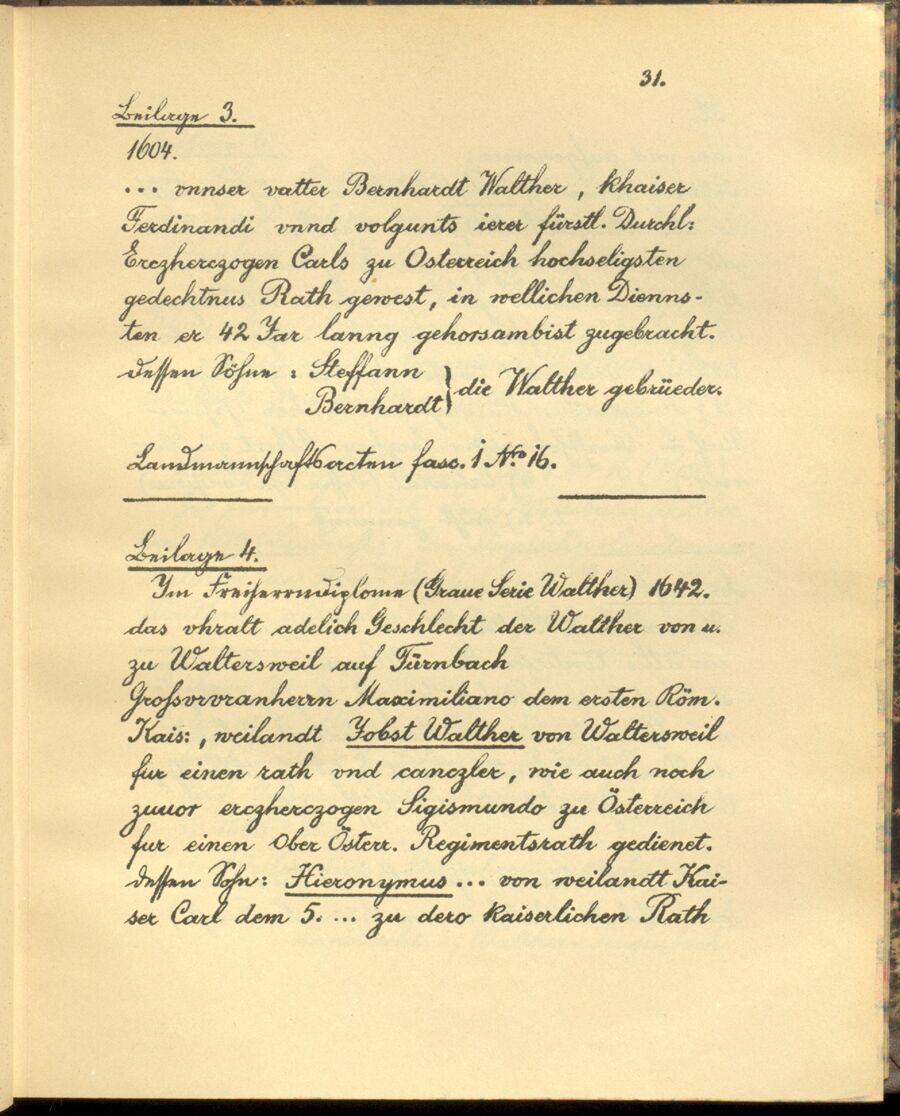 31.
Beilage 3.
1604.
... vnnser vatter Bernhardt Walther, khaiser
Ferdinandi vnnd volgunts ierer fürstl. Durchl:
Erczherczogen Carls zu Osterreich hochseligsten
gedechtnus Rath gewest, in wellichen Dienns-
ten er 42 Jar lanng gehorsambist zugebracht.
dessen Söhne : Steffann
Bernhardt } die Walther gebrüeder.
Landmannschaftsacten fasc. 1 No. 16.
Beilage 4.
Im Freiherrndiplome (Graue Serie Walther) 1642.
das vhralt adelich Geschlecht der Walther von u.
zu Waltersweil auf Türnbach
Grossvrvranherrn Maximiliano dem ersten Röm.
Kais:, weilandt Jobst Walther von Waltersweil
fur einen rath vnd canczler, wie auch noch
zuuor erczherczogen Sigismundo zu Österreich
fur einen Ober Österr. Regimentsrath gedienet.
dessen Sohn: Hieronymus ... von weilandt Kai-
ser Carl dem 5. ... zu dero kaiserlichen Rath